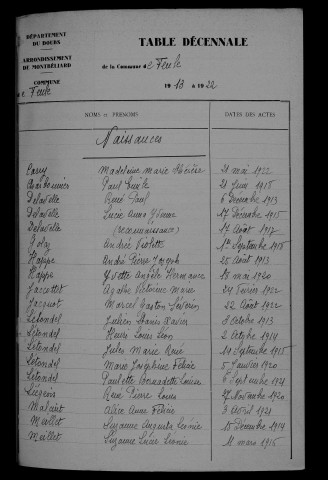 DÉPARTEMENT
DU DOUBS
ARRONDISSEMENT
DE MONTBÉLIARD
COMMUNE
e Feule
TABLE DÉCENNALE
de la Commune de Feule
1913 à 1922
NOMS et PRÉNOMS DATES DES ACTES
Naissances
Madeleine Marie Thérèse 21 mai 1922
Paul Emile 21 Juin 1915
Delavelle René Paul 6 Décembre 1913
Delavelle Lucie Anna Yvonne 17 Décembre 1915
Delavelle (reconnaissance) 14 Août 1917
Andrée Violette 1er Septembre 1916
André Pierre Joseph 25 Août 1913
Yvette Angèle Hermance 18 mai 1920
Jacottet Agathe Victorine Marie 24 Février 1922
Jacquot Marcel Gaston Séverin 22 Août 1922
Létondel Julien Xavier 3 Octobre 1913
Létondel Henri Louis Léon 2 Octobre 1914
Létondel Jules Marie René 19 Septembre 1915
Létondel Marie Joséphine Félicie 5 Janvier 1920
Létondel Paulette Bernadette Louise 6 Septembre 1921
Liégeois René Pierre Louis 27 Novembre 1920
Alice Anne Félicie 3 Août 1921
Meillet Suzanne Augusta Léonie 15 Décembre 1914
Meillet Suzanne Lucie Léonie 11 mars 1916